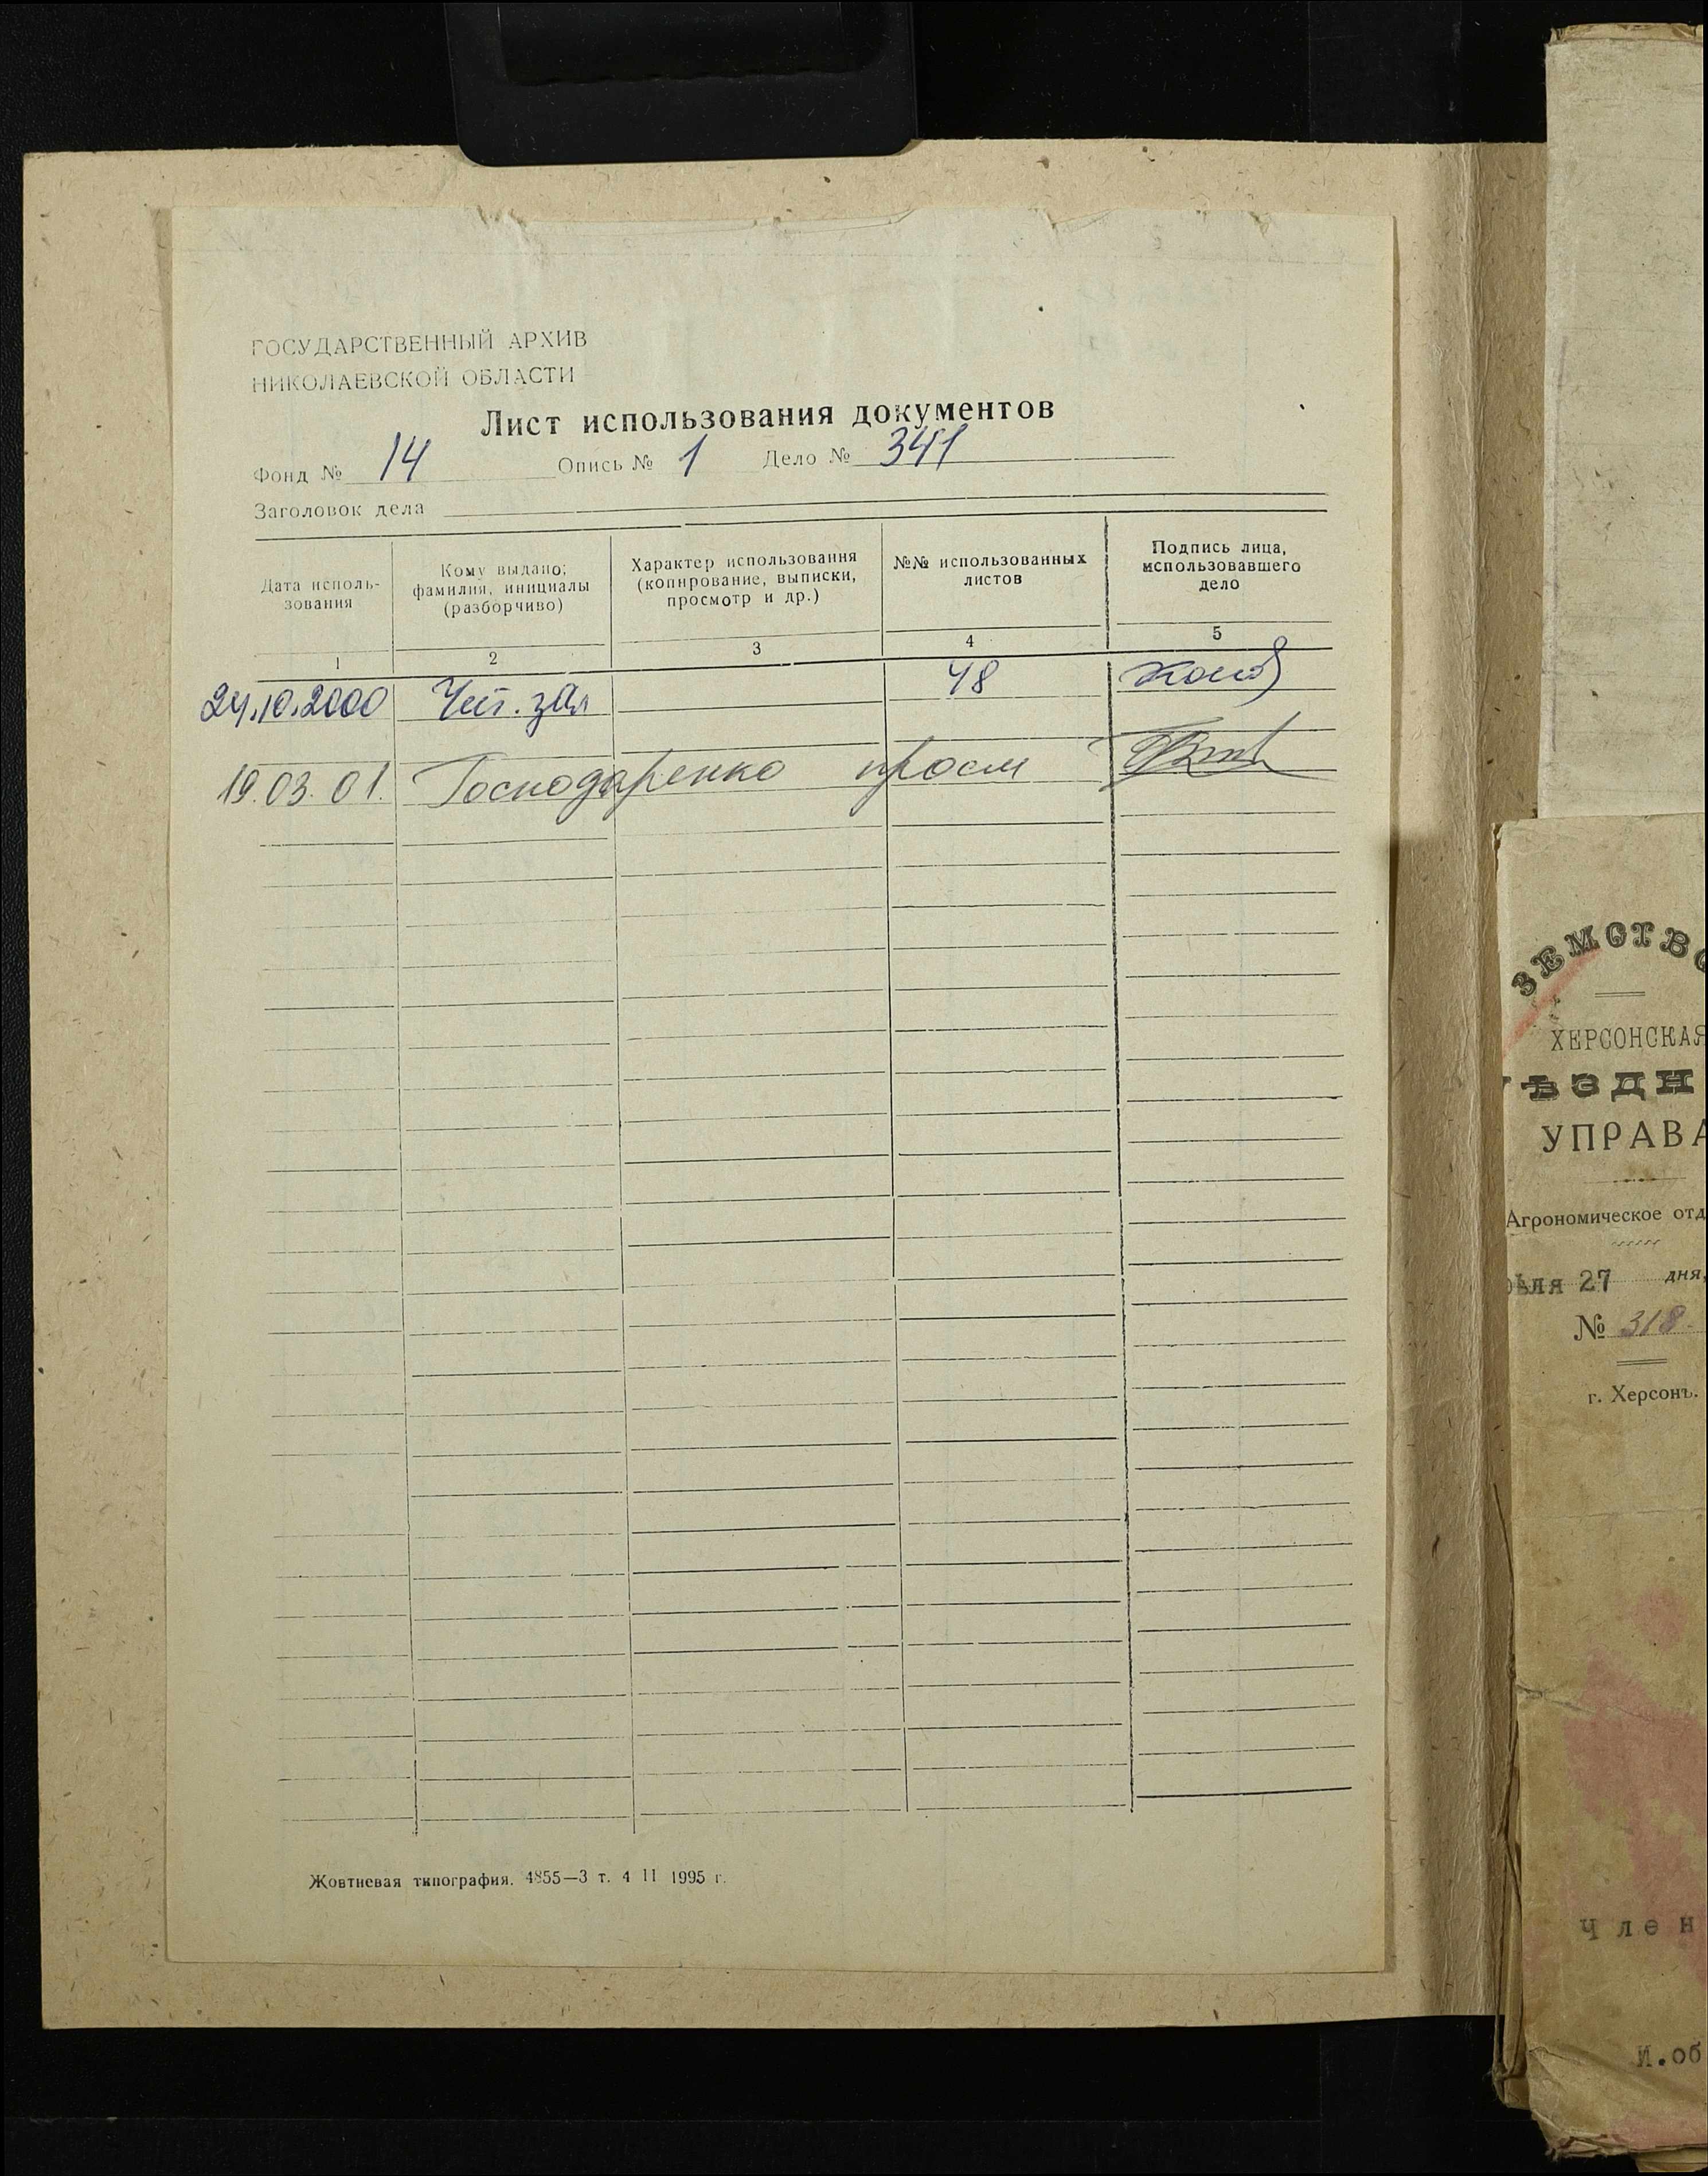 ГОСУДАРСТВЕННЫЙ АРХИВ
НИКОЛАЕВСКОЙ ОБЛАСТИ
Лист использования документов
Фонд № 14 Опись № 1 Дело № 341
Заголовок дела
Дата исполь-
зования
Кому выдано;
фамилия, инициалы
(разборчиво)
Характер использования
(копирование, выписки,
просмотр и др.)
№№ использованных
листов
Подпись лица,
использовавшего
дело
1 2 3 4 5
24.10.2000 Чит. зал 48
19.03.01. Господаренко просм
Жовтневая типография. 4855—3 т. 4 II 1995 г.
ЗЕМСТВО
ХЕРСОНСКАЯ
ѢЗДН
УПРАВА
Агрономическое отд
ѣля 27 дня,
№ 318
г. Херсонъ.
Член
И.об